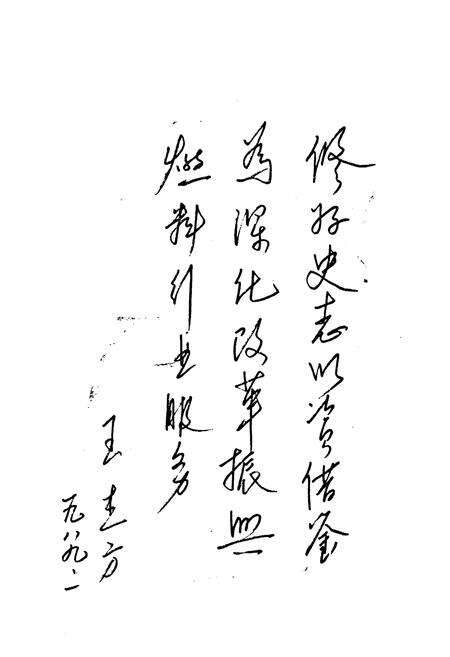 修好史志以资借鉴
為深化改革振兴
燃料行业服务
王方
一九八九、二